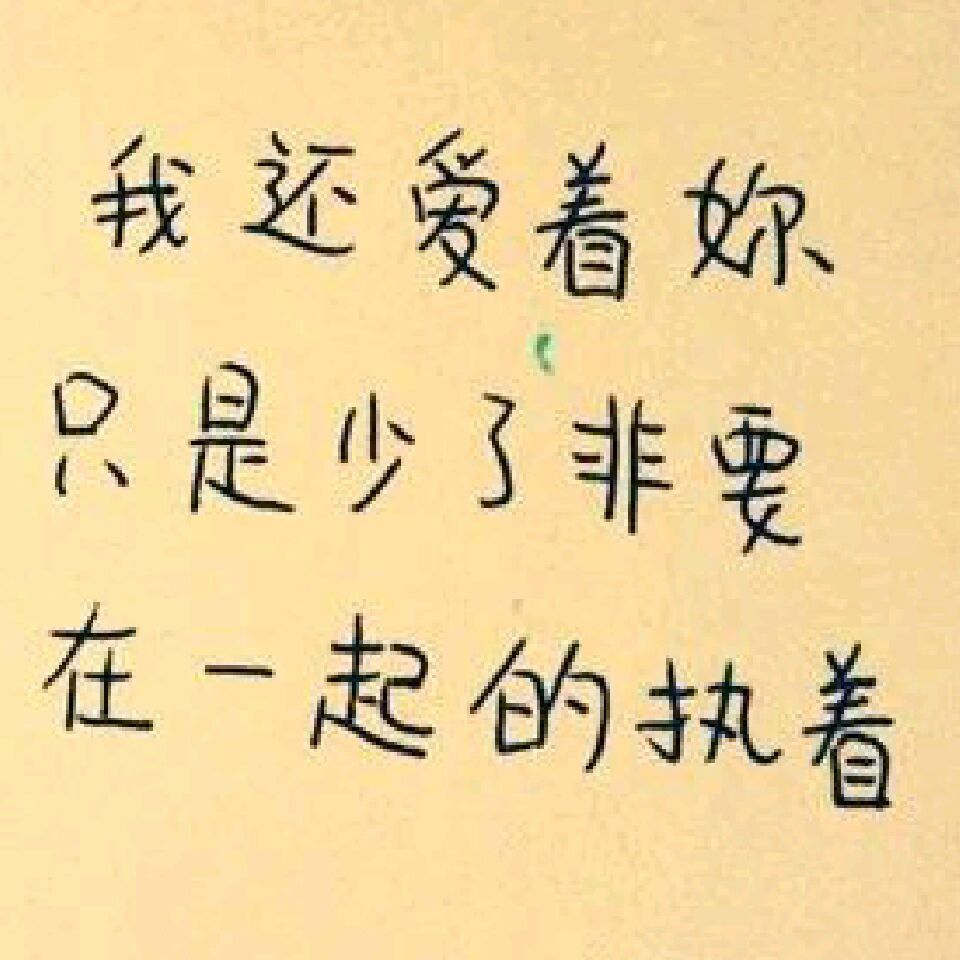 我还爱着妳
只是少了非要
在一起的执着